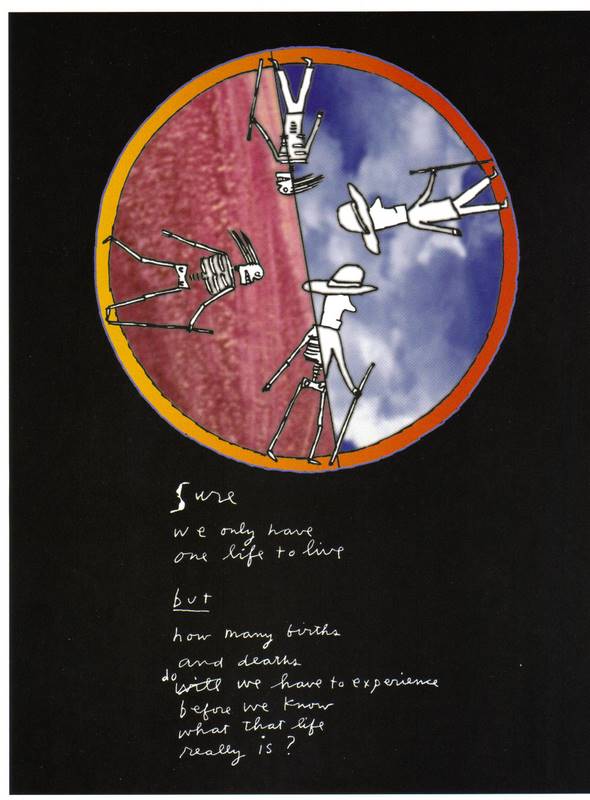 Sure
we only have
one life to live
but
how many births
and deaths
do will we have to experience
before we know
what that life
really is?